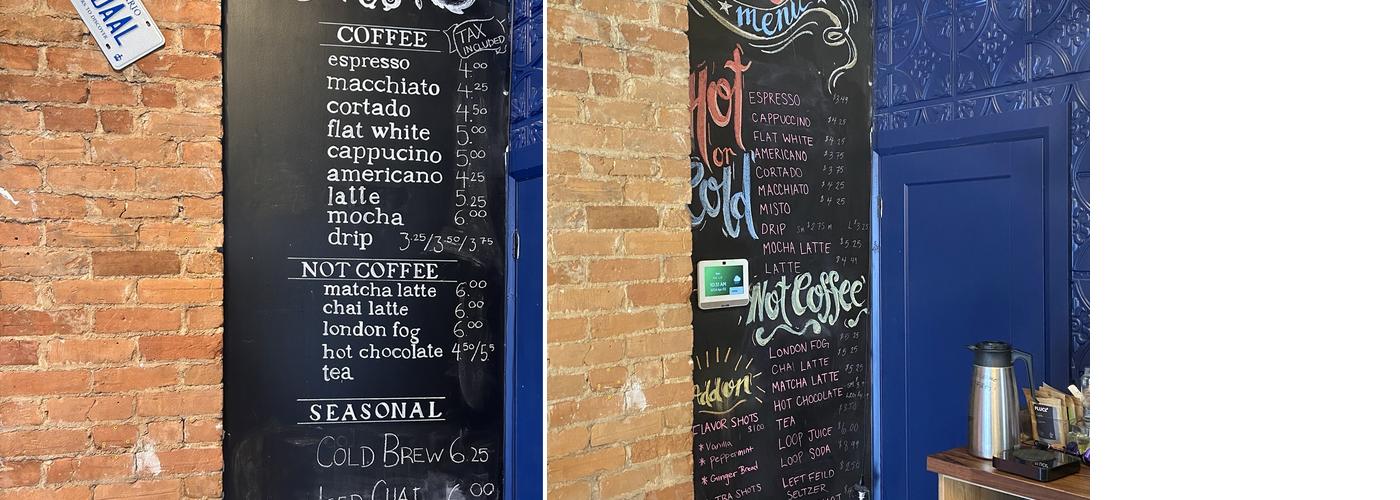 COFFEE
TAX
INCLUDED
espresso 4.00
macchiato 4.25
cortado 4.50
flat white 5.00
cappucino 5.00
americano 4.25
latte 5.25
mocha 6.00
drip 3.25/3.50/3.75
NOT COFFEE
matcha latte 6.00
chai latte 6.00
london fog 6.00
hot chocolate 4.50/5.5
tea
SEASONAL
COLD BREW 6.25
menu
Hot
or
Cold
ESPRESSO $3.49
CAPPUCCINO $4.25
FLAT WHITE $4.25
AMERICANO $3.75
CORTADO $3.75
MACCHIATO $4.25
MISTO
DRIP
MOCHA LATTE $5.25
LATTE
Not Coffee
LONDON FOG
CHAI LATTE $5.25
MATCHA LATTE $5.25
HOT CHOCOLATE
TEA
LOOP JUICE $6.00
LOOP SODA
LEFT FEILD
SELTZER
Addon
FLAVOR SHOTS
$1.00
* Vanilla
* Peppermint
* Ginger Bread